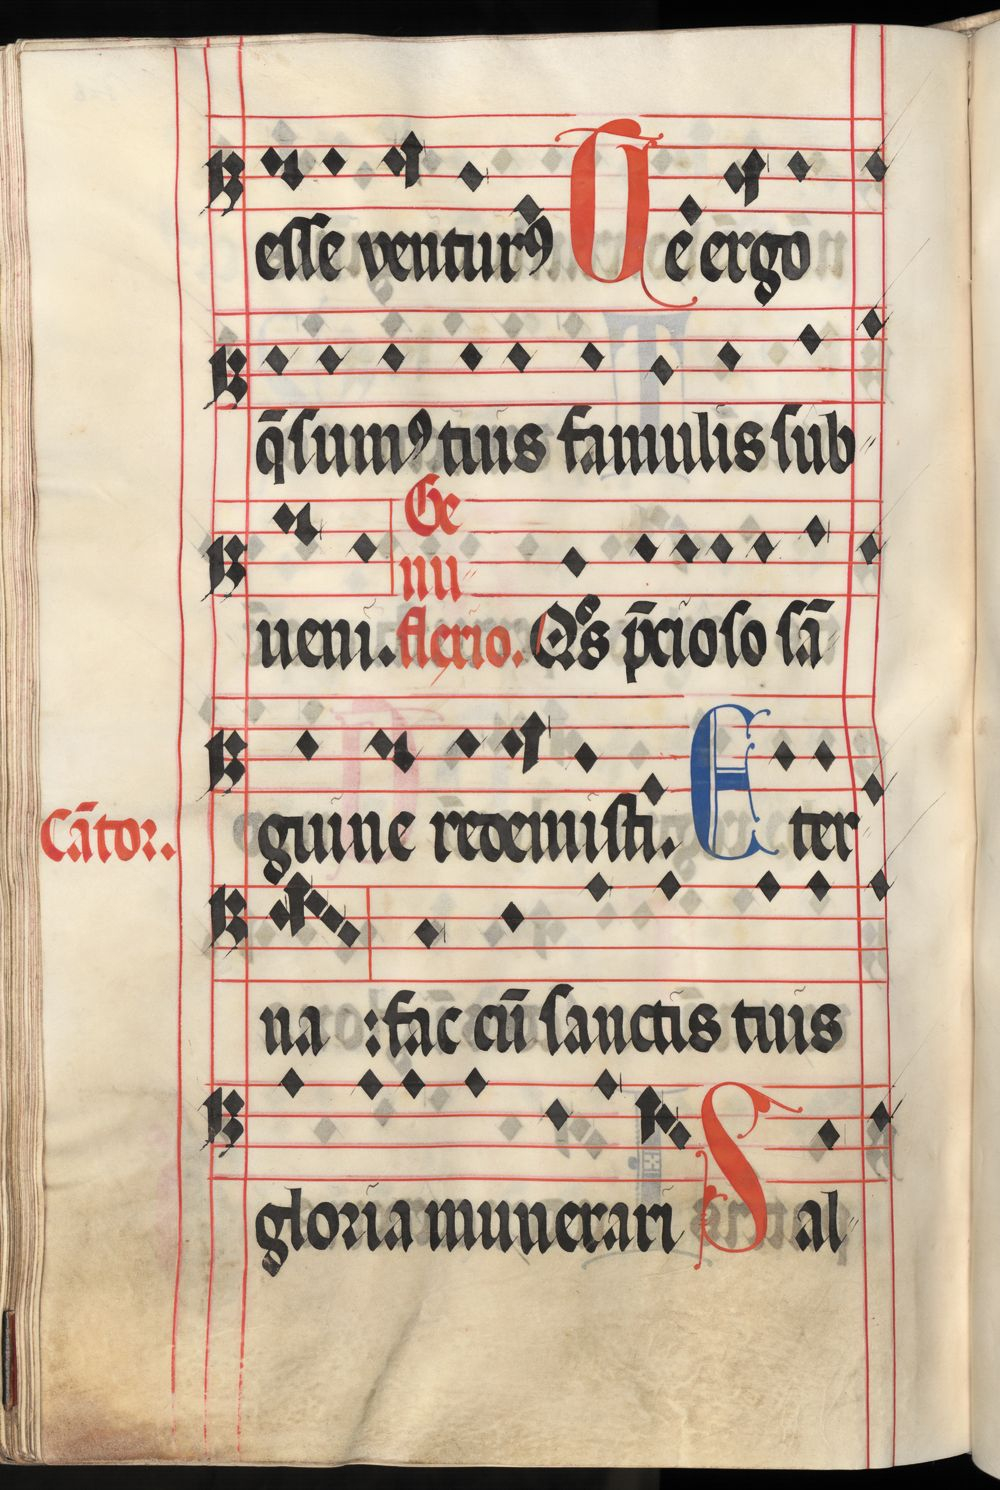 esse ventur⁹ Te ergo
q̄sum⁹ tuis famulis sub
Ge
nu
ueni. flexio. Qs p̄cioso sā
guine redemisti. Eter
Cātor.
na : fac cū sanctis tuis
gloria munerari Sal